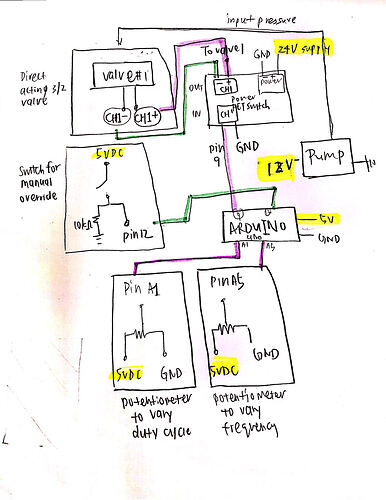 input pressure
Direct
acting 3/2
valve
valve#1
CH1-
CH1+
To valve1
GND
24V supply
OUT
- +
CH1
power
Power
FET switch
IN
CH1
GND
Pin
9
12V
Pump
Switch for
manual
override
5VDC
10kΩ
pin12
ARDUINO
UNO
5V
GND
A1
A5
Pin A1
5VDC
GND
Pin A5
5VDC
GND
potentiometer
to vary
duty cycle
potentiometer
to vary
frequency